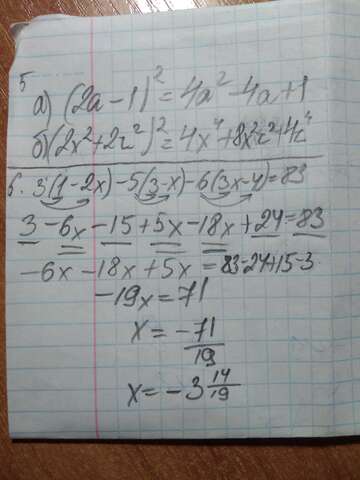 5
а) (2a-1)² = 4a² - 4a + 1
б) (2x² + 2c²)² = 4x⁴ + 8x²c² + 4c⁴
6. 3(1-2x) - 5(3-x) - 6(3x-4) = 83
3 - 6x - 15 + 5x - 18x + 24 = 83
-6x - 18x + 5x = 83-24+15-3
-19x = 71
x = -71/19
x = -3 14/19